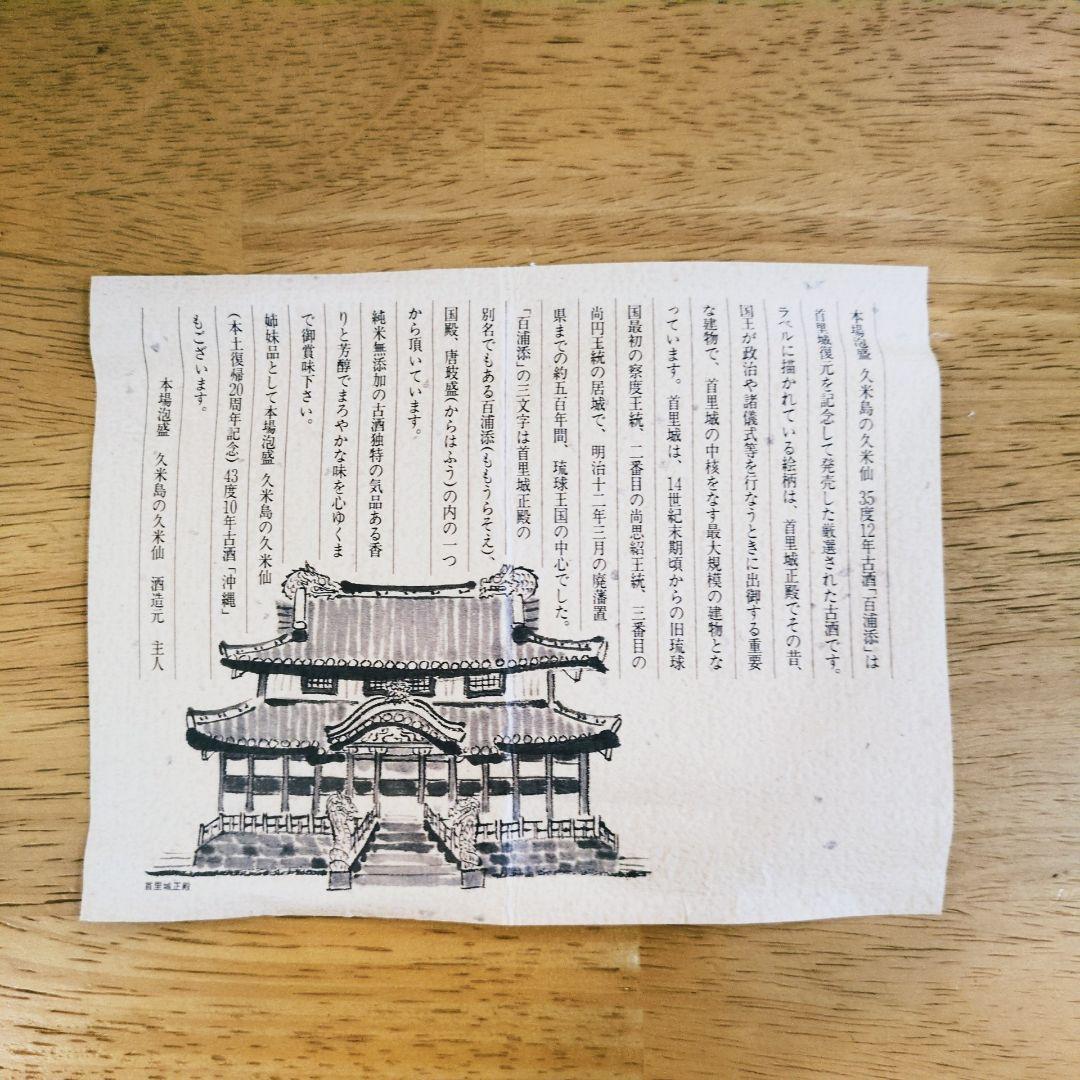 本場泡盛 久米島の久米仙 35度12年古酒「百浦添」は
首里城復元を記念して発売した厳選された古酒です。
ラベルに描かれている絵柄は、首里城正殿でその昔、
国王が政治や諸儀式等を行なうときに出御する重要
な建物で、首里城の中核をなす最大規模の建物とな
っています。首里城は、14世紀末期頃からの旧琉球
国最初の察度王統、二番目の尚思紹王統、三番目の
尚円王統の居城で、明治十二年三月の廃藩置
県までの約五百年間、琉球王国の中心でした。
「百浦添」の三文字は首里城正殿の
別名でもある百浦添(ももうらそえ)、
国殿、唐玻盛(からはふう)の内の一つ
から頂いています。
純米無添加の古酒独特の気品ある香
りと芳醇でまろやかな味を心ゆくま
で御賞味下さい。
姉妹品として本場泡盛 久米島の久米仙
(本土復帰20周年記念)43度10年古酒「沖縄」
もございます。
本場泡盛 久米島の久米仙 酒造元 主人
首里城正殿